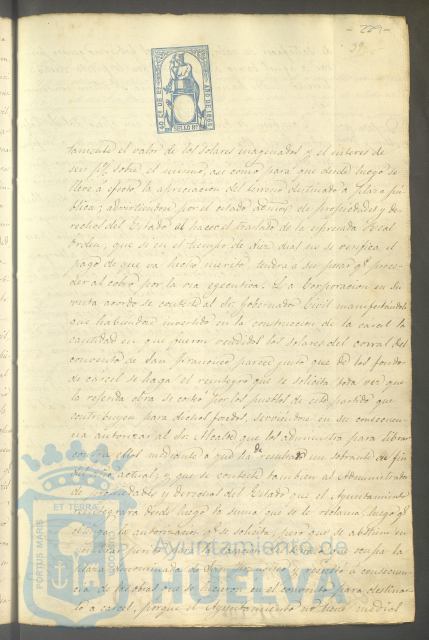 - 229 -
39.
SELLO 8º
AÑO DE 186
tamente el valor de los solares enagenados y el interes de
seis p% sobre el mismo, asi como para que desde luego se
lleve a efecto la apreciacion del terreno destinado a plaza pú
blica; advirtiendose por el citado señor de propiedades y de-
rechos del Estado al hacer el traslado de la espresada Real
Orden, que si en el tiempo de diez dias no se verifica el
pago de que va hecho merito, tendrá a su pesar qº proce-
der al cobro por la via egecutiva. La Corporacion en su
vista acordó se conteste al Sr. Gobernador Civil manifestandole
que habiendose invertido en la construccion de la carcel la
cantidad en que fueron vendidos los solares del corral del
convento de San Francisco parece justo que de los fondos
de carcel se haga el reintegro que se solicita, toda vez que
la referida obra se costeó por los pueblos de este partido que
contribuyen para dichos fondos, sirviendose en su consecuen-
cia autorizar al Sr. Alcalde que los administra para librar
contra ellos mediante a que ha de resultar un sobrante de fin
del año actual; y que se conteste tambien al Administrador
de propiedades y derechos del Estado que el Ayuntamiento
reintegrará desde luego la suma que se le reclama, luego qº
obtenga la autorizacion qº se solicita; pero que se abstiene
nombrar perito para la apreciacion del terreno que ocupa la
plaza denominada de San Francisco y resultó a consecuen-
cia de las obras que se hicieron en el convento para destinar
lo a carcel, porque el Ayuntamiento no tiene medios
PORTUS MARIS
ET TERRA
Ayuntamiento de
HUELVA